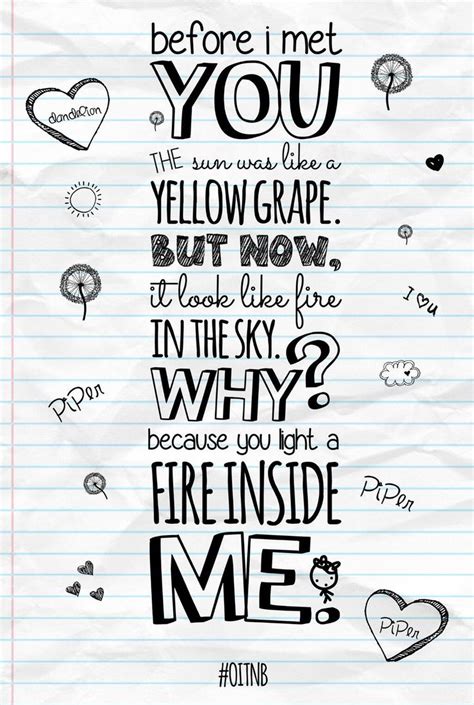 before i met
YOU
dandelion
THE sun was like a
YELLOW GRAPE.
BUT NOW,
it look like fire
I ♥ u
IN THE SKY.
WHY?
PiPer
because you light a
FIRE INSIDE
PiPer
ME.
PiPer
#OITNB